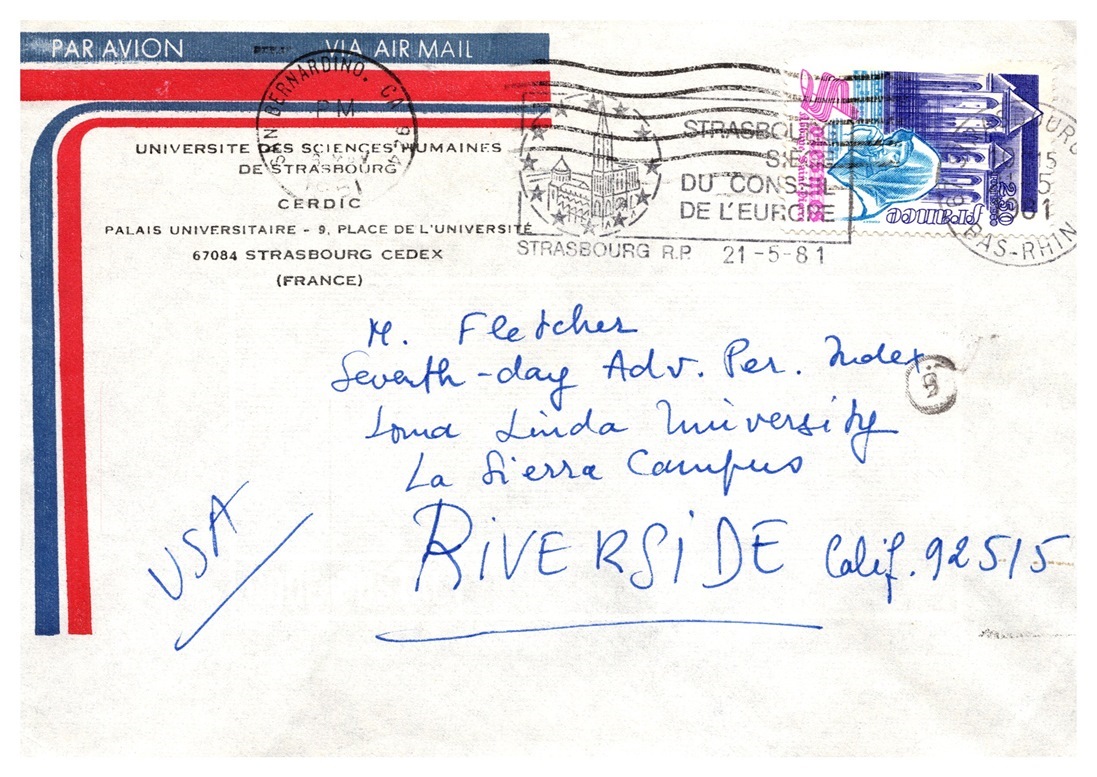 PAR AVION VIA AIR MAIL
SAN BERNARDINO, CA 924
PM
1981
UNIVERSITE DES SCIENCES HUMAINES
DE STRASBOURG
CERDIC
PALAIS UNIVERSITAIRE - 9, PLACE DE L'UNIVERSITÉ
67084 STRASBOURG CEDEX
(FRANCE)
STRASBOURG
SIEGE
DU CONSEIL
DE L'EUROPE
STRASBOURG R.P. 21-5-81
france
2.50
BAS-RHIN
M. Fletcher
Seventh-day Adv. Per. Index
Loma Linda University
La Sierra Campus
RIVERSIDE Calif. 92515
USA